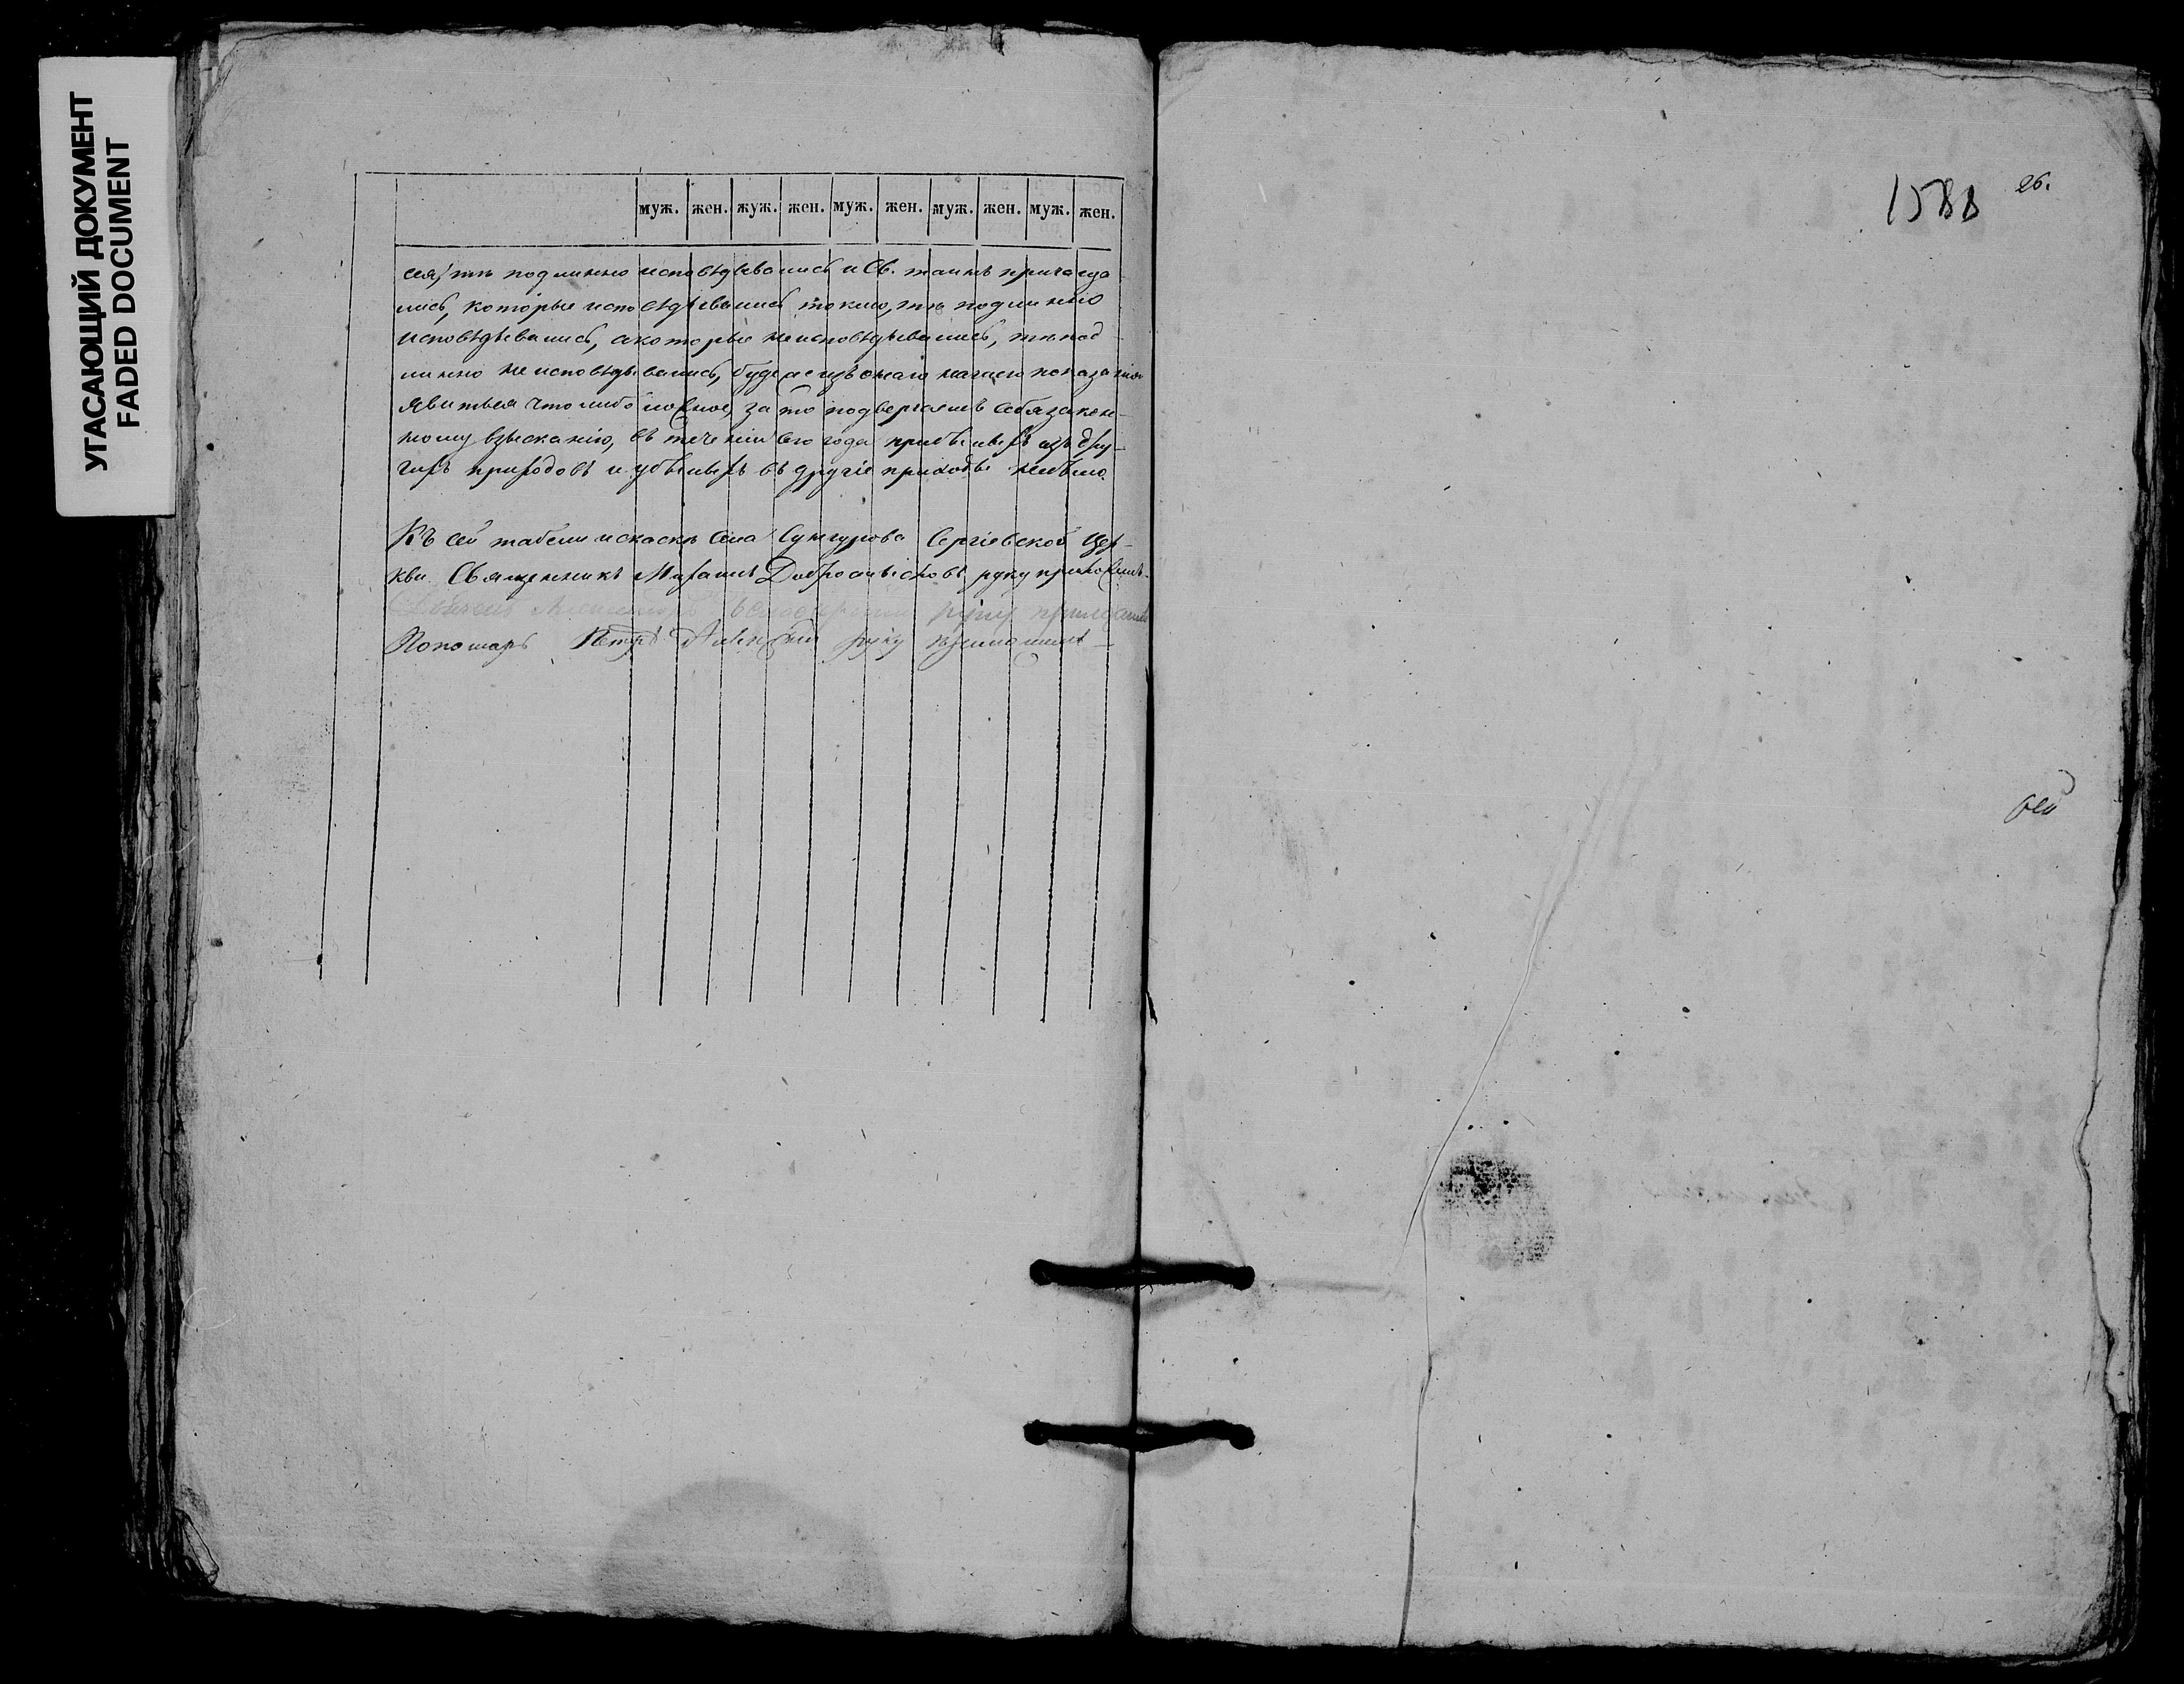 УГАСАЮЩИЙ ДОКУМЕНТ
FADED DOCUMENT
муж. жен. жуж. жен. муж. жен. муж. жен. муж. жен.
ся, тѣ подлинно исповѣдывались и Св. таинъ причаща
лись, которые исповѣдывались токмо, тѣ подлинно
исповѣдывались, а которые неисповѣдывались, тѣ под
линно не исповѣдывались, буде же изъ онаго нашего показанія
явиться что либо ложное, за то подвергаемъ себя закон-
ному взысканію, въ теченіи сего года прибылыхъ изъ дру-
гихъ приходовъ и убылыхъ въ другіе приходы небыло.
Къ сей табели и скаскѣ села Сунгурова Сергіевской Цер-
кви Священникъ Михаилъ Добросмысловъ руку приложилъ.
руку приложилъ
Пономарь Петръ руку приложилъ
1588 26.